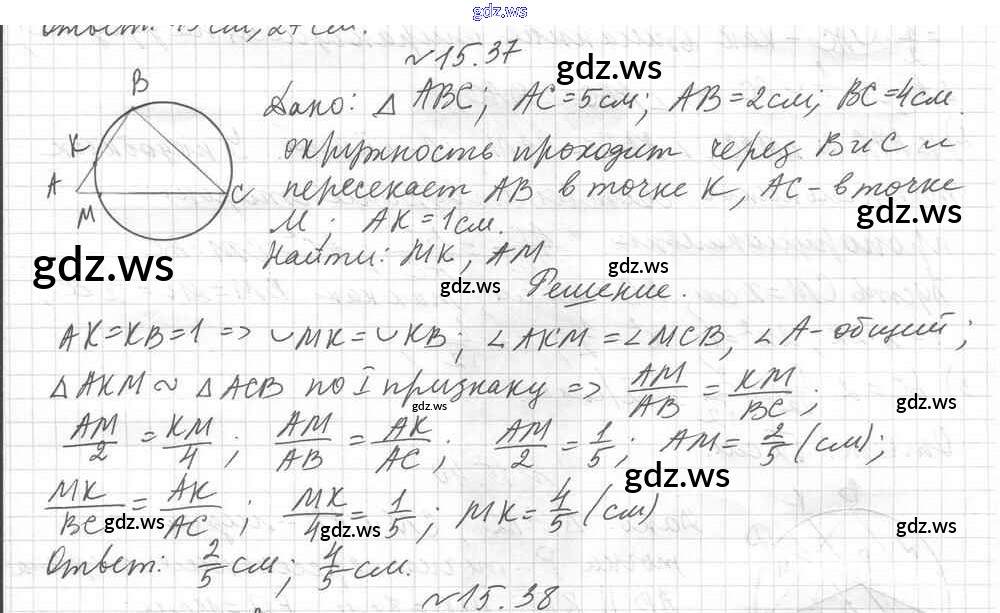 gdz.ws
Ответ: см, см.
№15.37
gdz.ws
B
K
A
M
C
Дано: △ ABC; AC=5см; AB=2см; BC=4см.
окружность проходит через B и C и
пересекает AB в точке K, AC-в точке
M; AK=1см.
gdz.ws
Найти: MK, AM.
gdz.ws
gdz.ws
gdz.ws
Решение.
AK=KB=1 => ∪MK=∪KB; ∠AKM=∠MCB, ∠A-общий;
△AKM ~ △ACB по I признаку => AM/AB = KM/BC;
gdz.ws
gdz.ws
AM/2 = KM/4; AM/AB = AK/AC; AM/2 = 1/5; AM = 2/5 (см);
gdz.ws
MK/BC = AK/AC; MK/4 = 1/5; MK = 4/5 (см)
gdz.ws
gdz.ws
gdz.ws
Ответ: 2/5 см, 4/5 см.
№15.38